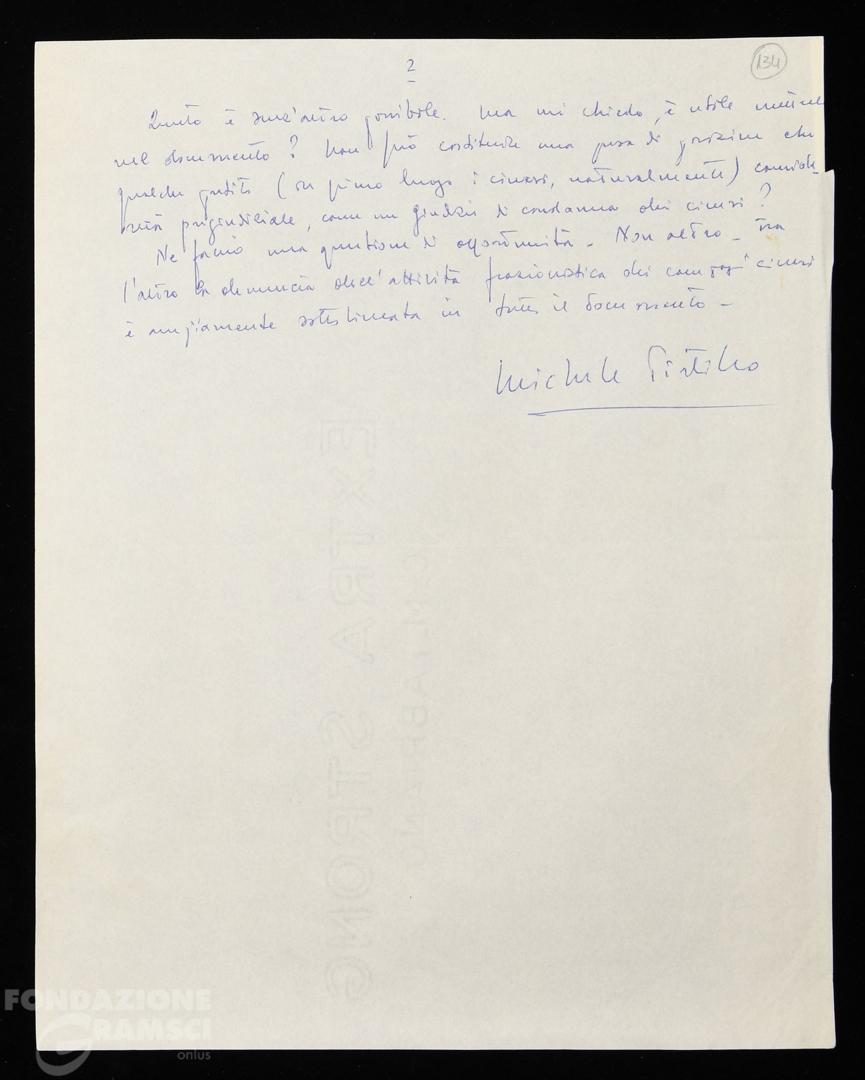 2
134
Questo è senz'altro possibile. Ma mi chiedo, è utile metterlo
nel documento? Non può costituire una presa di posizione che
qualche partito (in primo luogo i cinesi, naturalmente) conside-
rerà pregiudiziale, come un giudizio di condanna dei cinesi?
Ne faccio una questione di opportunità. Non altro. Tra
l'altro la denuncia dell'attività frazionistica dei compagni cinesi
è ampiamente sottolineata in tutto il documento.
Michele Pistillo
EXTRA STRONG
FABRIANO
FONDAZIONE
GRAMSCI
onlus